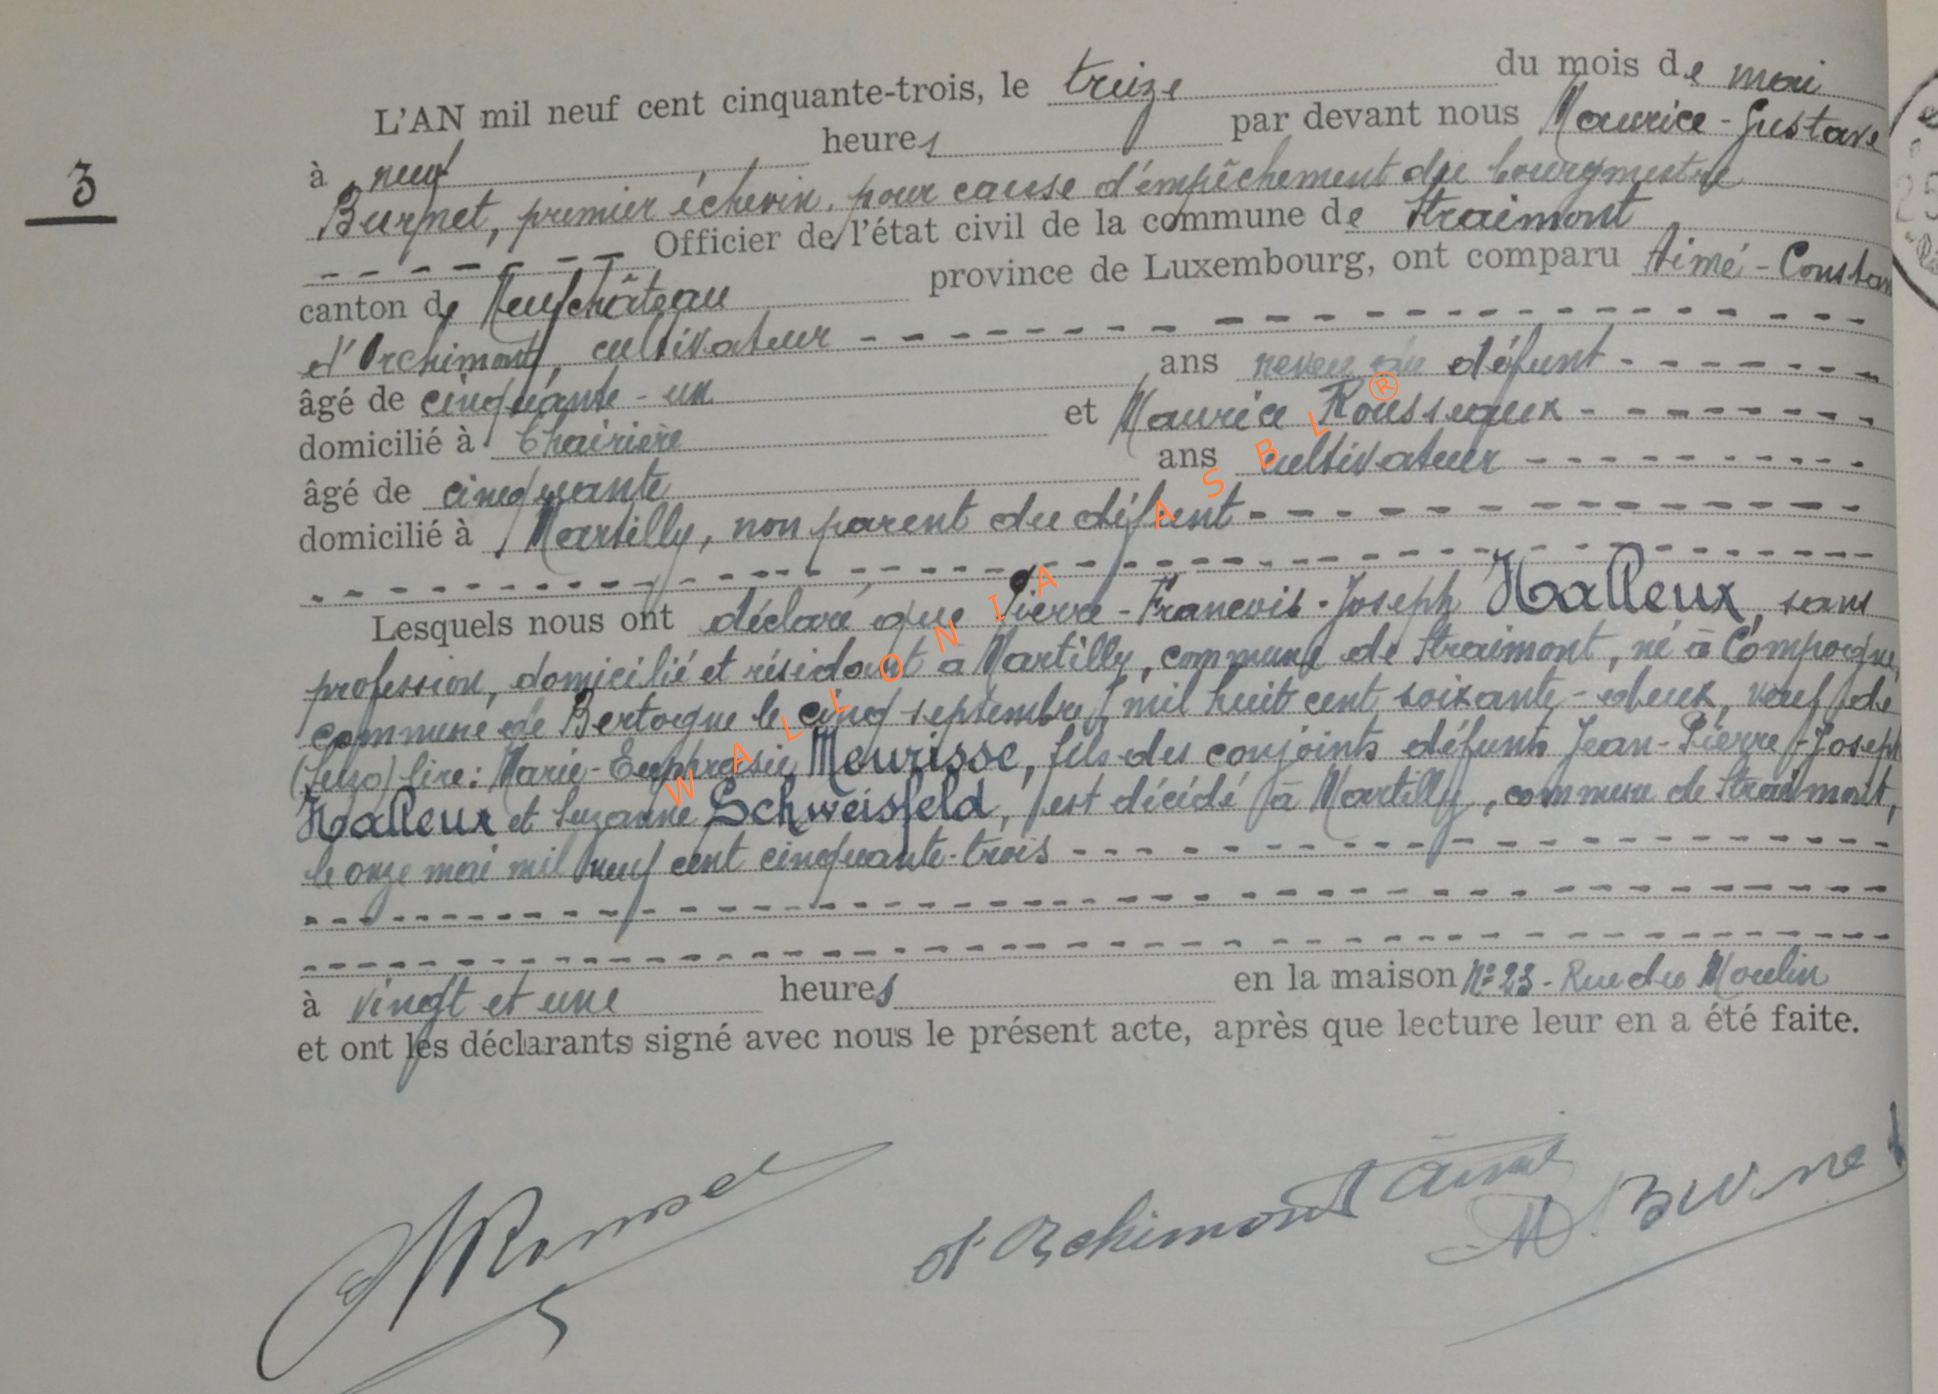 3
L'AN mil neuf cent cinquante-trois, le treize du mois de mai
à neuf heures par devant nous Maurice-Gustave
Burnet, premier échevin, pour cause d'empêchement du bourgmestre
Officier de l'état civil de la commune de Straimont
canton de Neufchâteau province de Luxembourg, ont comparu Aimé-Constan
d'Orchimont, cultivateur
âgé de cinquante-un ans neveu du défunt
domicilié à Chairière et Maurice Rousseaux
âgé de cinquante ans cultivateur
domicilié à Martilly, non parent du défunt
Lesquels nous ont déclaré que Pierre-Francois-Joseph Halleux, sans
profession, domicilié et résidant à Martilly, commune de Straimont, né à Compogne,
commune de Bertogne le cinq septembre mil huit cent soixante-deux, veuf de
lire: Marie-Euphrasie Meurisse, fils des conjoints défunts Jean-Pierre-Joseph
Halleux et Suzanne Schweisfeld, est décédé à Martilly, commune de Straimont,
le onze mai mil neuf cent cinquante-trois
à vingt et une heures en la maison N° 23 - Rue du Moulin
et ont les déclarants signé avec nous le présent acte, après que lecture leur en a été faite.
d'Orchimont Aimé
M Burnet
WALLONIA ASBL®